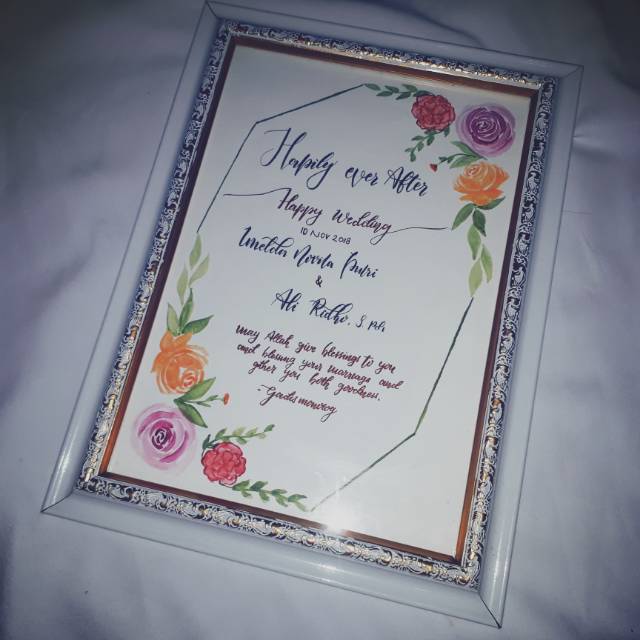 Hapily ever After
Happy Wedding
10 Nov 2018
Imelda Novita Putri
&
Ali Ridho, S.Pdi
May Allah give blessings to you
and blessing your marriage and
gther you both goodness.
- Gadismanrog